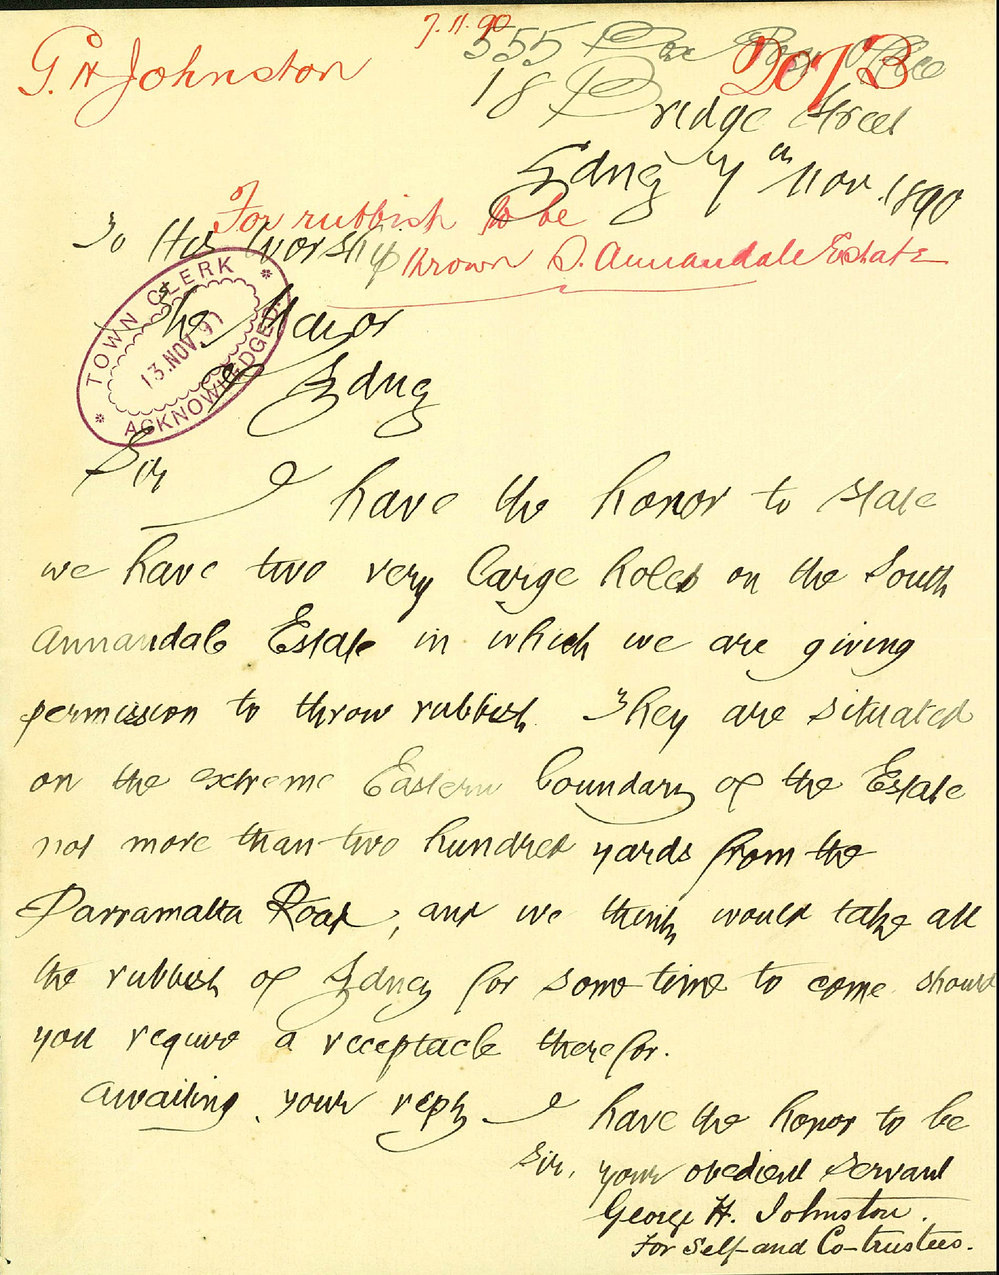 7.11.90
G. H Johnston
2073
555 Box Post Office
18 Bridge Street
Sydney 7th Nov. 1890
For rubbish to be
thrown S. Annandale Estate
To His Worship
The Mayor
of Sydney
TOWN CLERK
13.NOV.90
ACKNOWLEDGED.
Sir I have the honor to state
we have two very large holes on the South
Annandale Estate in which we are giving
permission to throw rubbish. They are situated
on the extreme Eastern boundary of the Estate
not more than two hundred yards from the
Parramatta Road, and we think would take all
the rubbish of Sydney for some time to come should
you require a receptacle therefor.
Awaiting your reply I have the honor to be
Sir, your obedient servant
George H. Johnston.
For Self and Co-trustees.